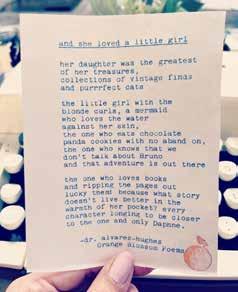 and she loved a little girl
her daughter was the greatest
of her treasures,
collections of vintage finds
and purrrfect cats
the little girl with the
blonde curls, a mermaid
who loves the water
against her skin,
the one who eats chocolate
panda cookies with no aband on,
the one who knows that we
don't talk about Bruno
and that adventure is out there
the one who loves books
and ripping the pages out
lucky them because what story
doesn't live better in the
warmth of her pocket? every
character longing to be closer
to the one and only Daphne.
-dr. alvarez-hughes
Orange Blossom Poems